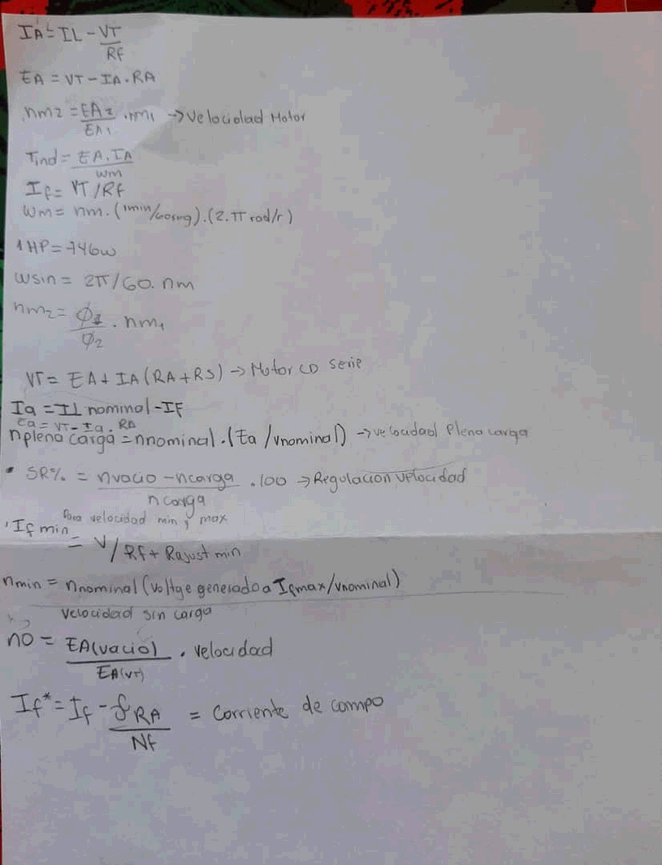 IA = IL - VT/Rf
EA = VT - IA . RA
nm2 = EA2/EA1 . nm1 → Velocidad Motor
Tind = EA . IA/wm
If = VT / Rf
wm = nm . (1min/60seg) . (2.π rad/r)
1 HP = 746w
wsin = 2π/60 . nm
nm2 = φ1/φ2 . nm1
VT = EA + IA (RA + RS) → Motor CD serie
Ia = IL nominal - IF
Ea = VT - Ia . RA
nplena carga = nnominal . (Ea / Vnominal) → velocidad Plena carga
• SR% = nvacio - ncarga/ncarga . 100 → Regulacion velocidad
Para velocidad min y max
If min = V / Rf + Rajust min
nmin = nnominal (Voltge generado a Ifmax / Vnominal)
Velocidad sin carga
n0 = EA(vacio)/EA(VT) . velocidad
If* = If - FRA/Nf = Corriente de campo